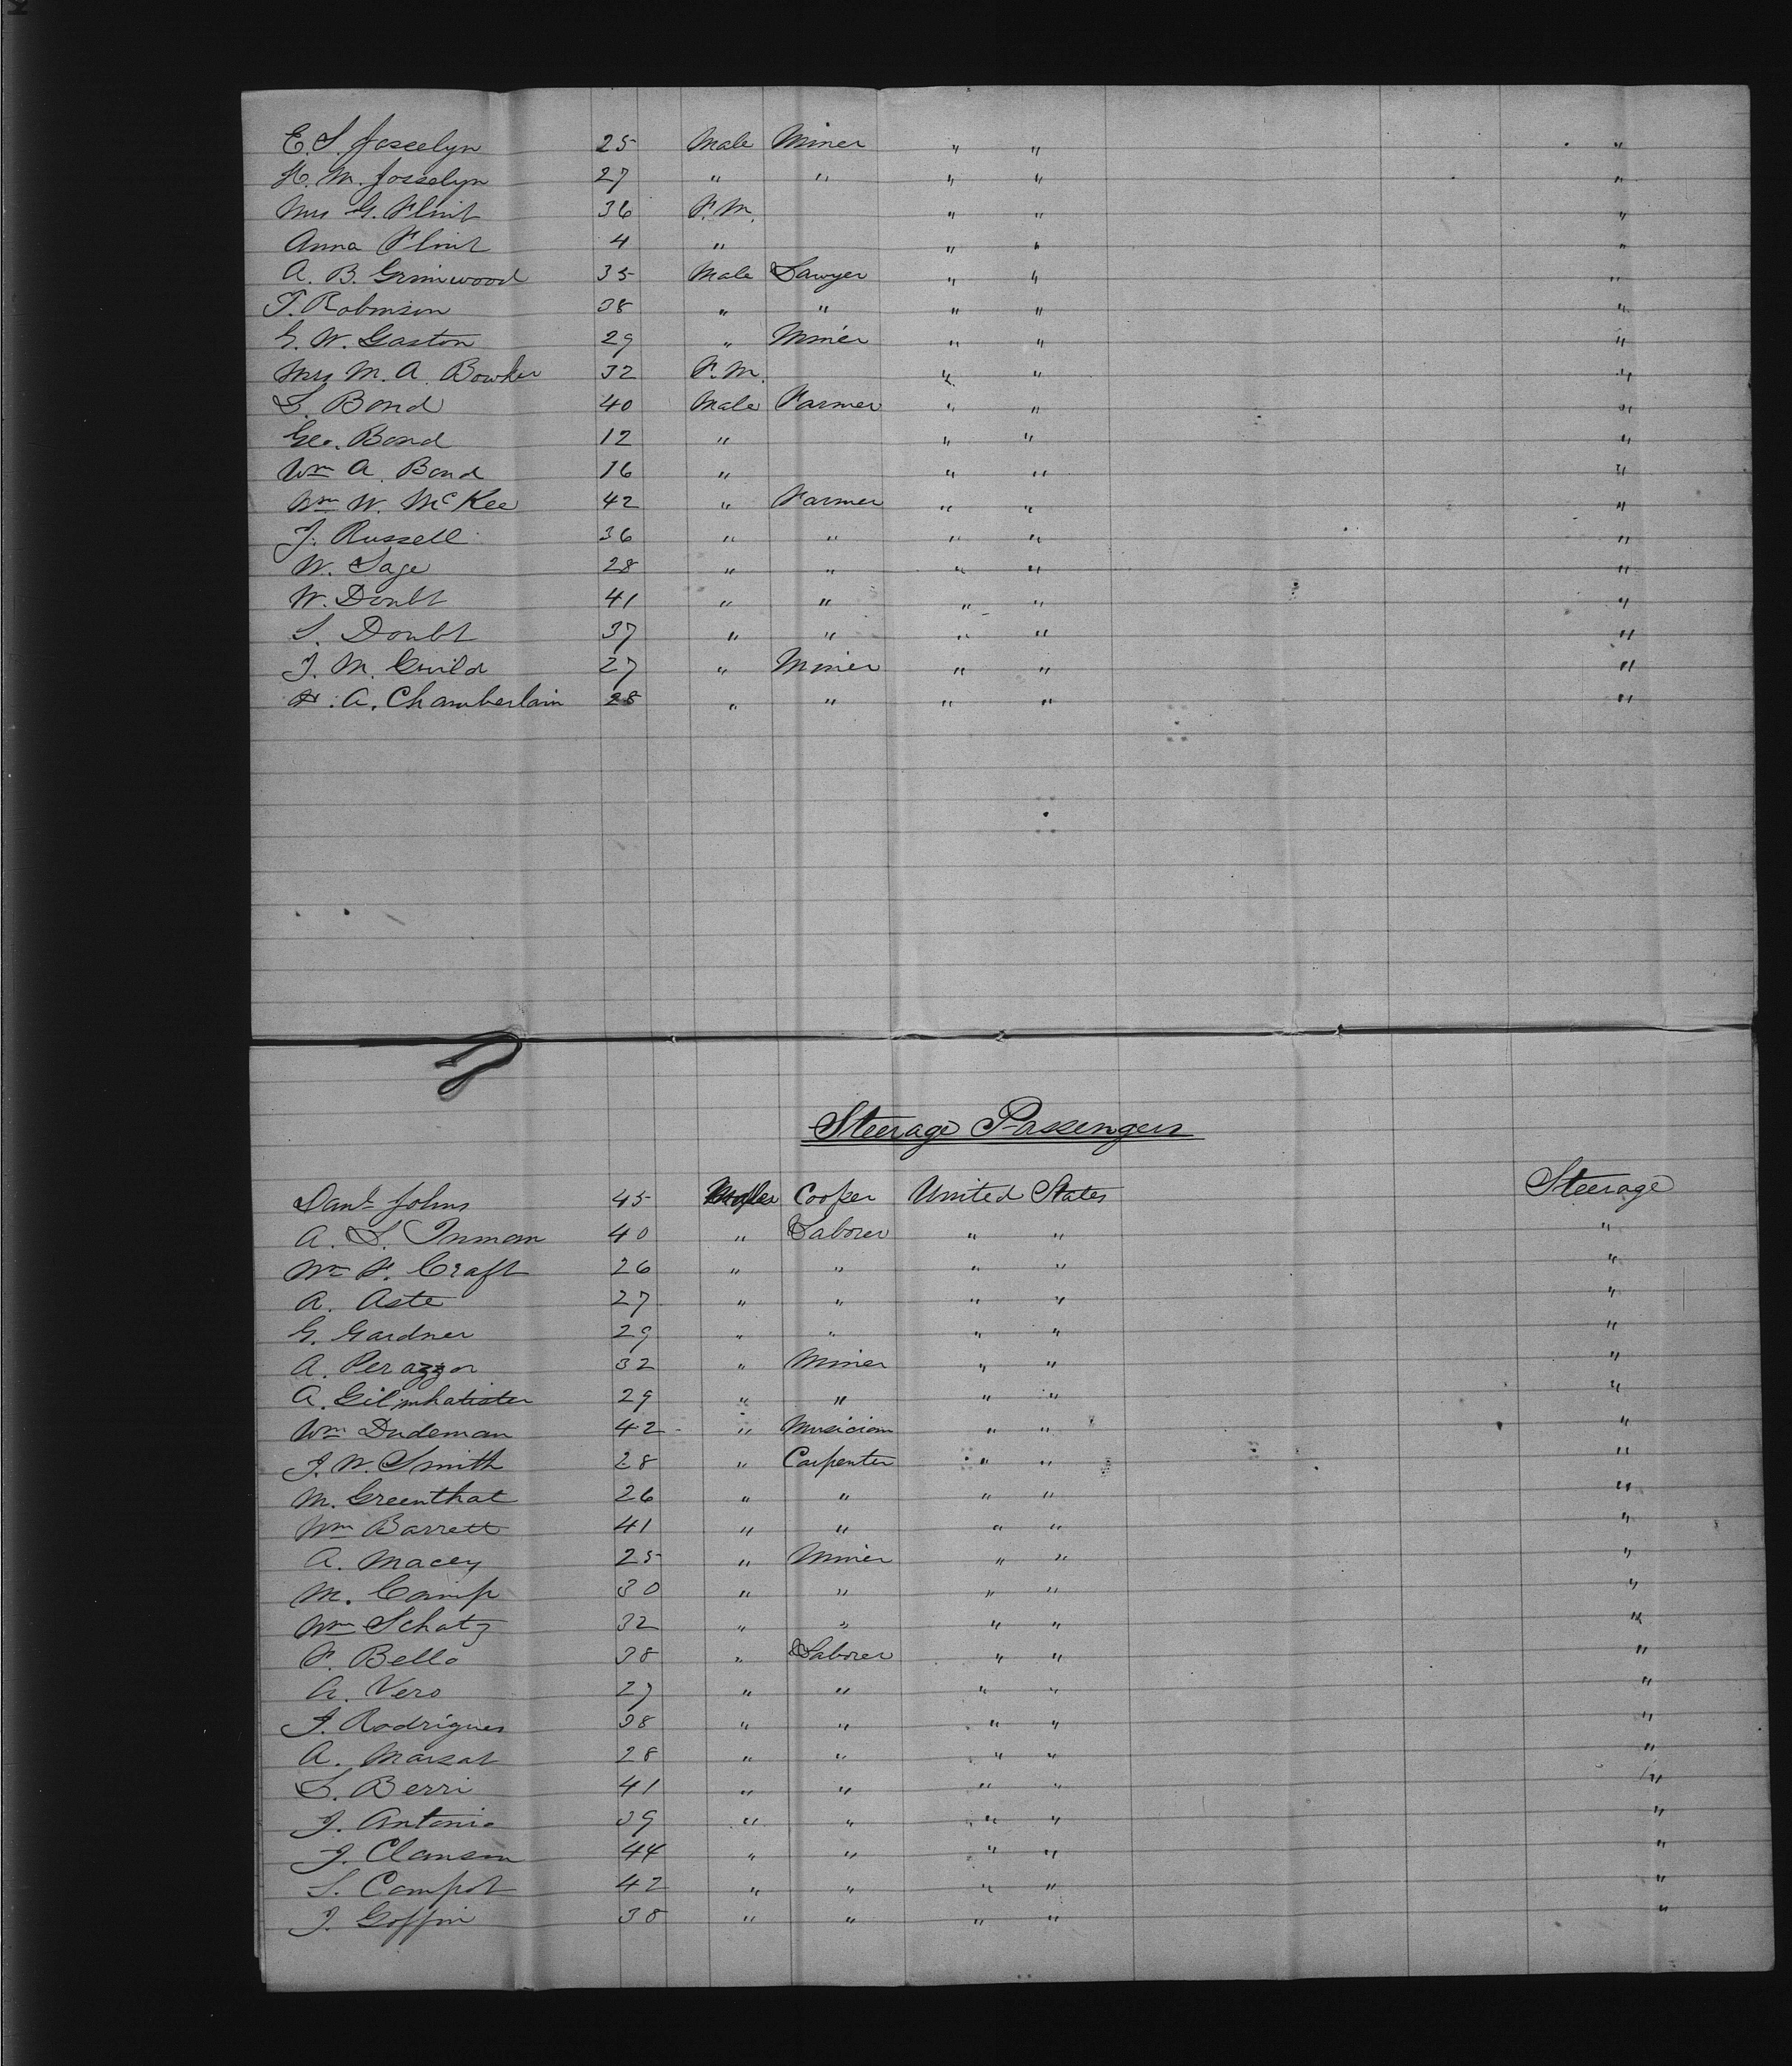 E. S. Josselyn 25 Male Miner " " "
H. M. Josselyn 27 " " " " "
Mrs G. Flint 36 F.M. " " "
Anna Flint 4 " " " "
A. B. Grimwood 35 Male Lawyer " " "
T. Robinson 38 " " " " "
G. W. Gaston 29 " Miner " " "
Mrs M. A. Bowker 32 F.M. " " "
L. Bond 40 Male Farmer " " "
Geo. Bond 12 " " " "
Wm A. Bond 16 " " " "
Wm W. McKee 42 " Farmer " " "
J. Russell 36 " " " " "
W. Sage 28 " " " " "
W. Doubt 41 " " " " "
S. Doubt 37 " " " " "
J. M. Guild 27 " Miner " " "
H. A. Chamberlain 28 " " " " "
Steerage Passengers
Danl Johns 45 Males Cooper United States Steerage
A. L. Inman 40 " Laborer " " "
Wm F. Craft 26 " " " " "
A. Aste 27 " " " " "
G. Gardner 29 " " " " "
A. Perazzo 32 " Miner " " "
A. 29 " " " " "
Wm Dudeman 42 " Musician " " "
J. W. Smith 28 " Carpenter " " "
M. Greenthat 26 " " " " "
Wm Barrett 41 " " " " "
A. Macey 25 " Miner " " "
M. Camp 30 " " " " "
Wm Schatz 32 " " " " "
F. Bello 38 " Laborer " " "
A. Vero 27 " " " " "
J. Rodrigues 38 " " " " "
A. Marsat 28 " " " " "
L. Berri 41 " " " " "
J. Antonio 39 " " " " "
J. Clanson 44 " " " " "
S. Campot 42 " " " " "
J. Goffin 38 " " " " "